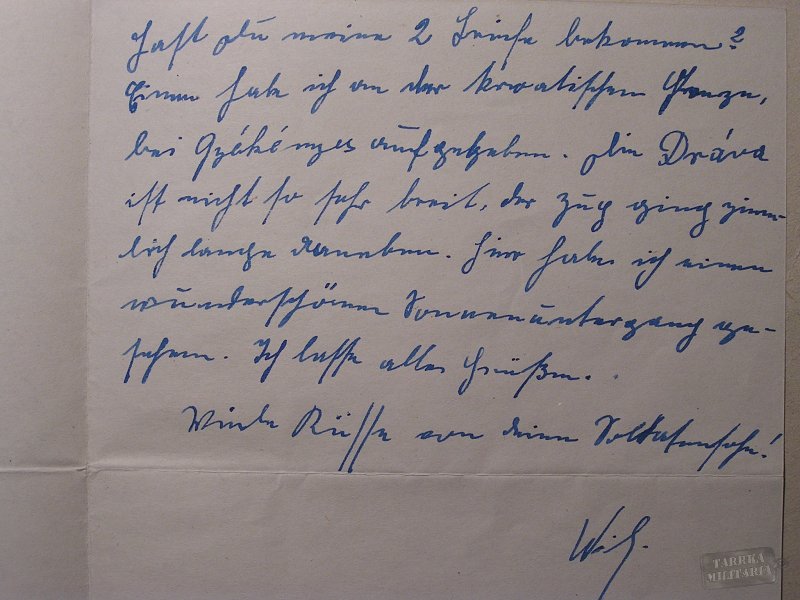 Hast Du meine 2 Briefe bekommen?
Einen habe ich an der kroatischen Grenze,
bei Gyékényes aufgegeben. Die Dráva
ist nicht so sehr breit, der Zug ging ziem-
lich lange daneben. Hier habe ich einen
wunderschönen Sonnenuntergang ge-
sehen. Ich lasse alle Grüßen.
Viele Küsse von deinem Soldatensohn!
Wil.
TARRKA
MILITARIA